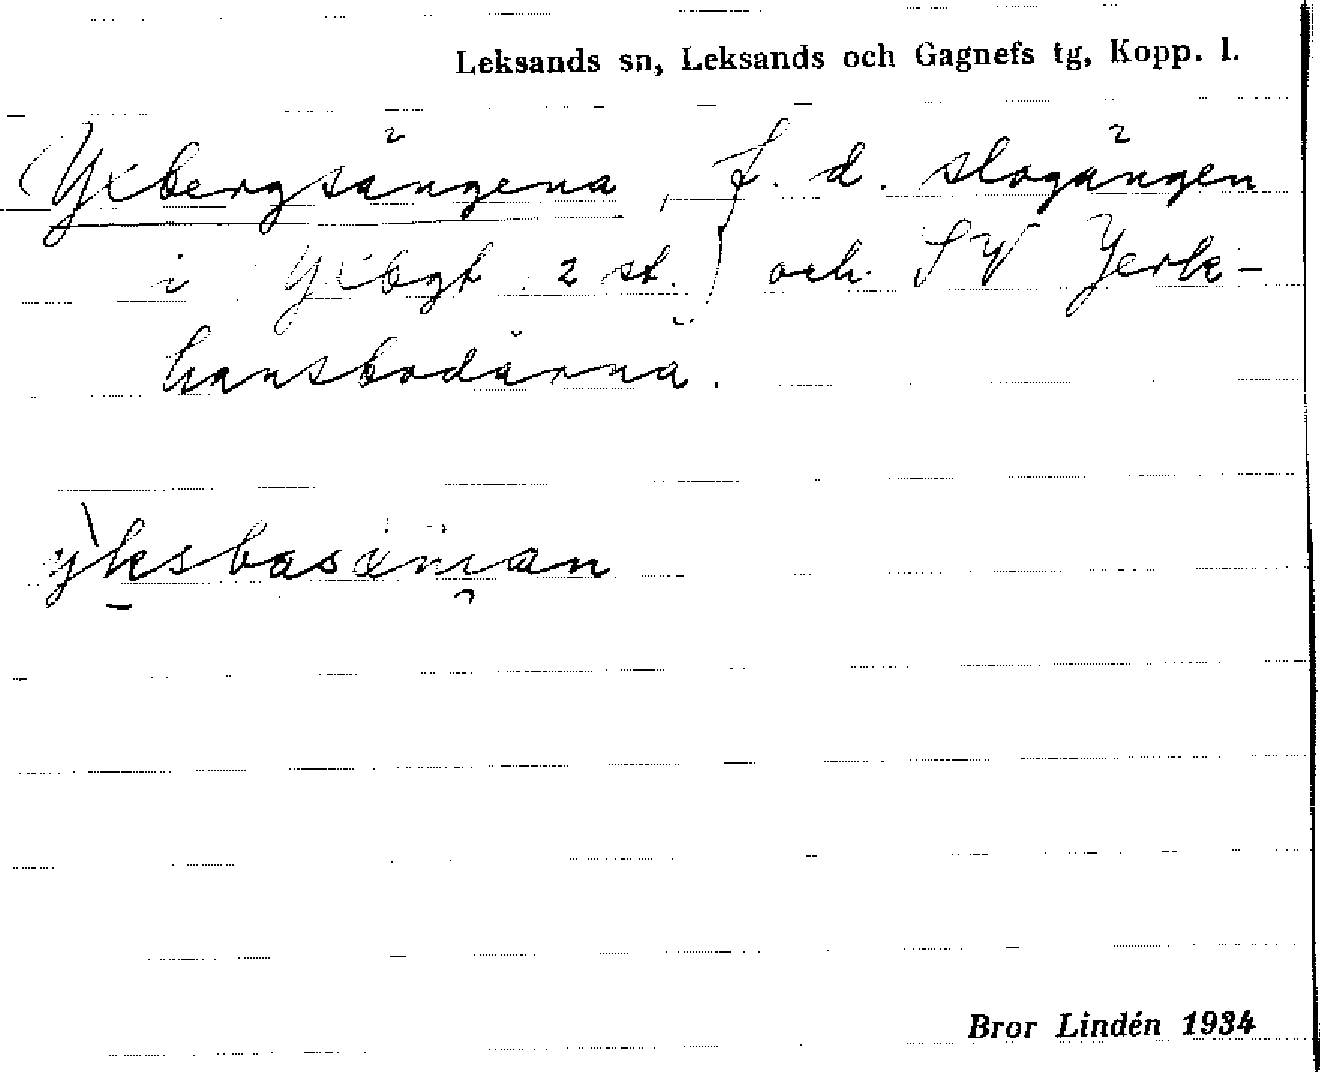 Leksands sn, Leksands och Gagnefs tg, Kopp. l.
Yxbergsängena, f. d. slogängen
i Yxbgt 2 st. och SV Jerk-
hansbodarna.
yksbasänian
Bror Lindén 1934